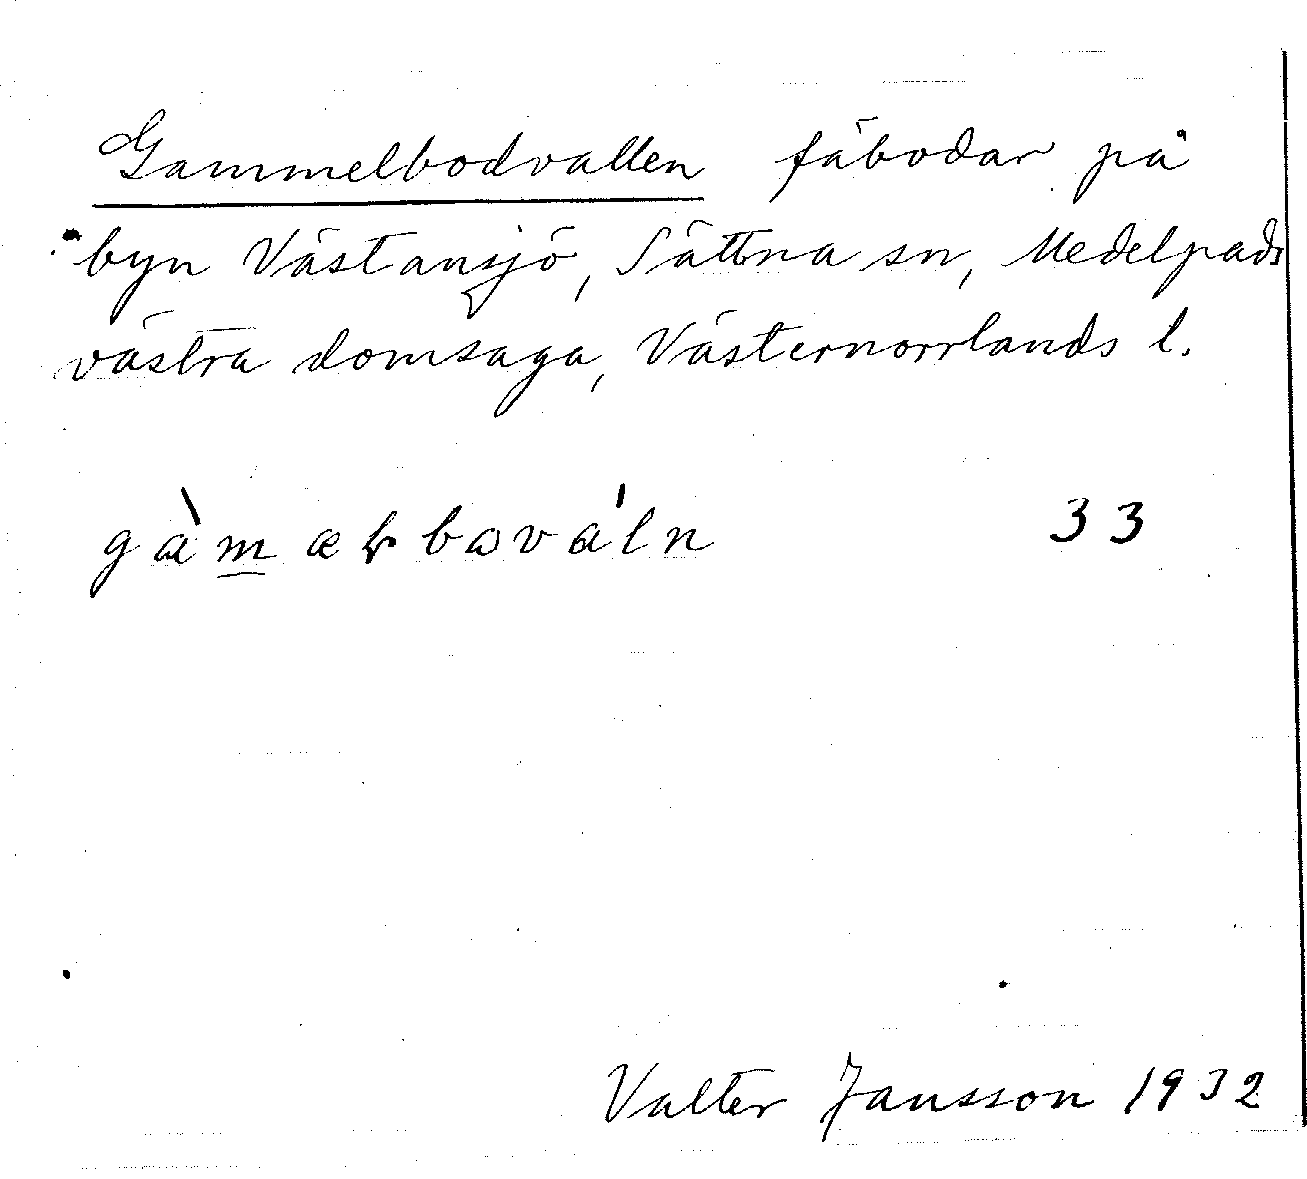 Gammelbodvallen fäbodar på
byn Västansjö, Sättna sn, Medelpads
västra domsaga, Västernorrlands l.
gàmæɽbωváln 33
Valter Jansson 1932